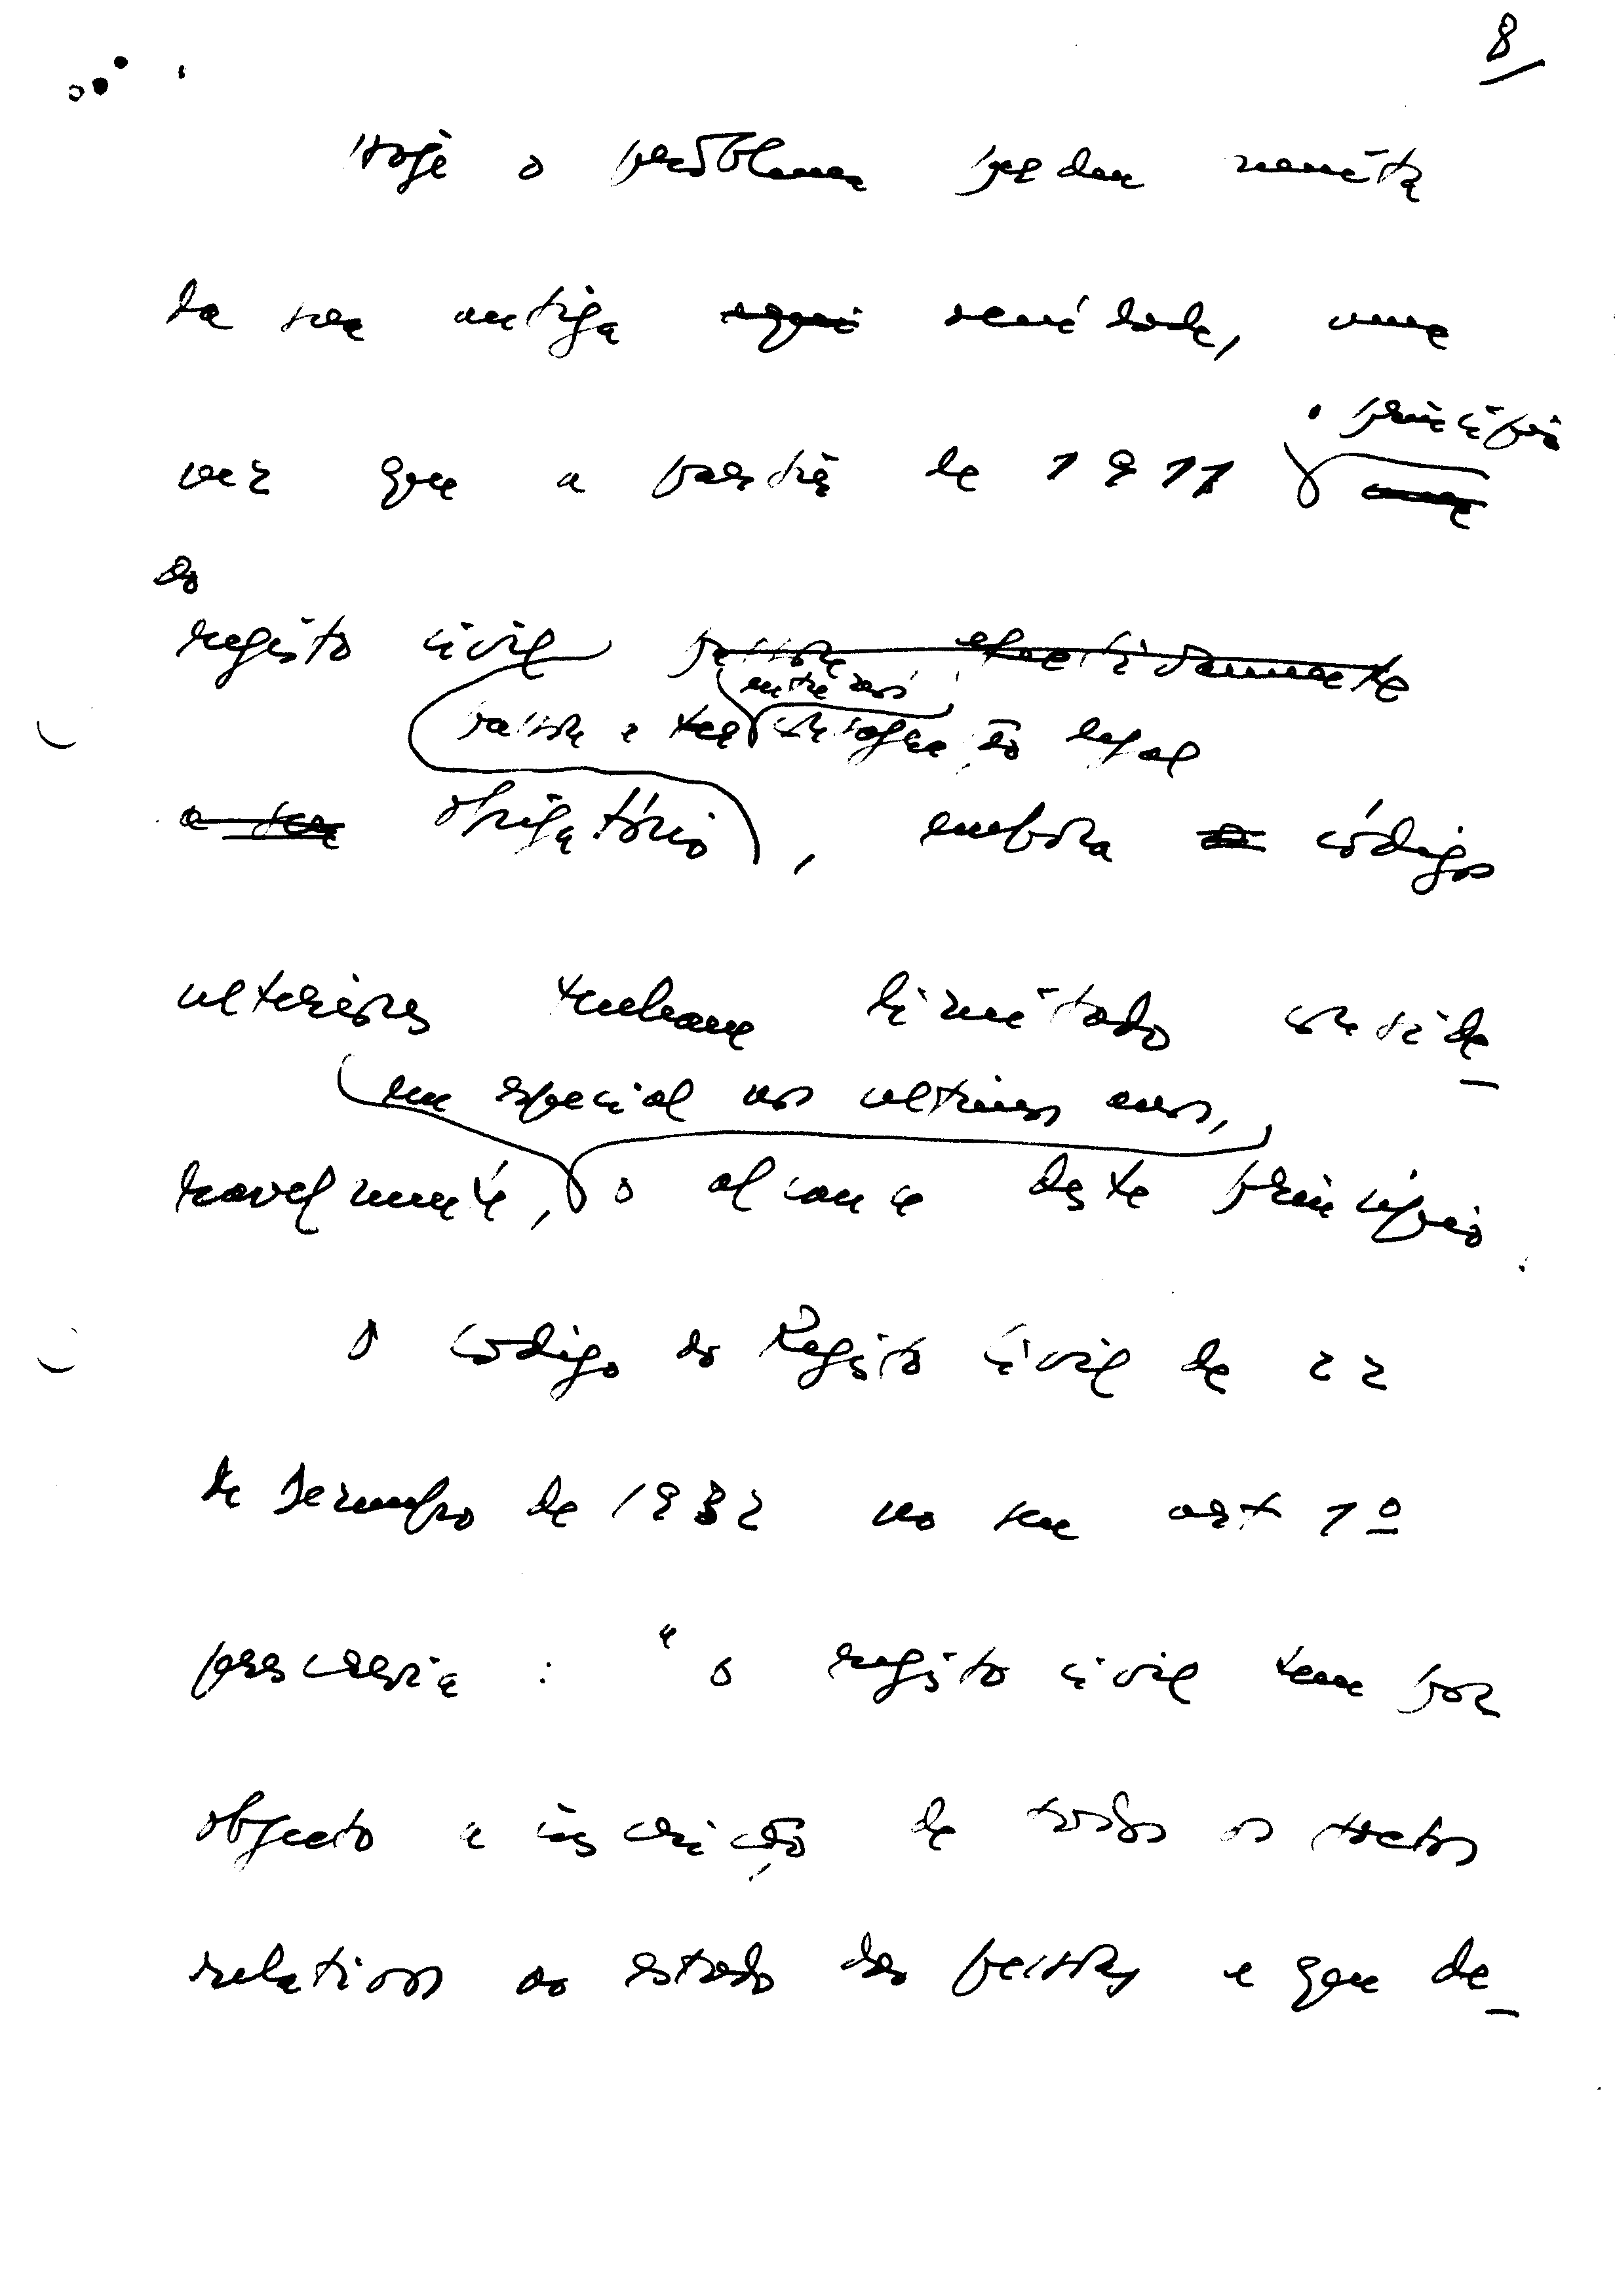 8
Hoje o problema perdeu muita
da sua antiga acuidade, uma
vez que a partir de 1911 o princípio
do
registo civil passou efectivamente
passou a ter entre nós consagração legal
a ser obrigatório, embora códigos
ulteriores tenham limitado conside-
em especial nos ultimos anos,
ravelmente, o alcance deste princípio.
O código do Registo civil de 22
de Dezembro de 1932 no seu art 1º
prescrevia : "o registo civil tem por
objecto a inscrição de todos os factos
relativos ao estado das pessoas e que de-